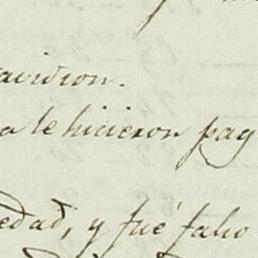 avidron.
a le hicieron pag
edad, y fué falso